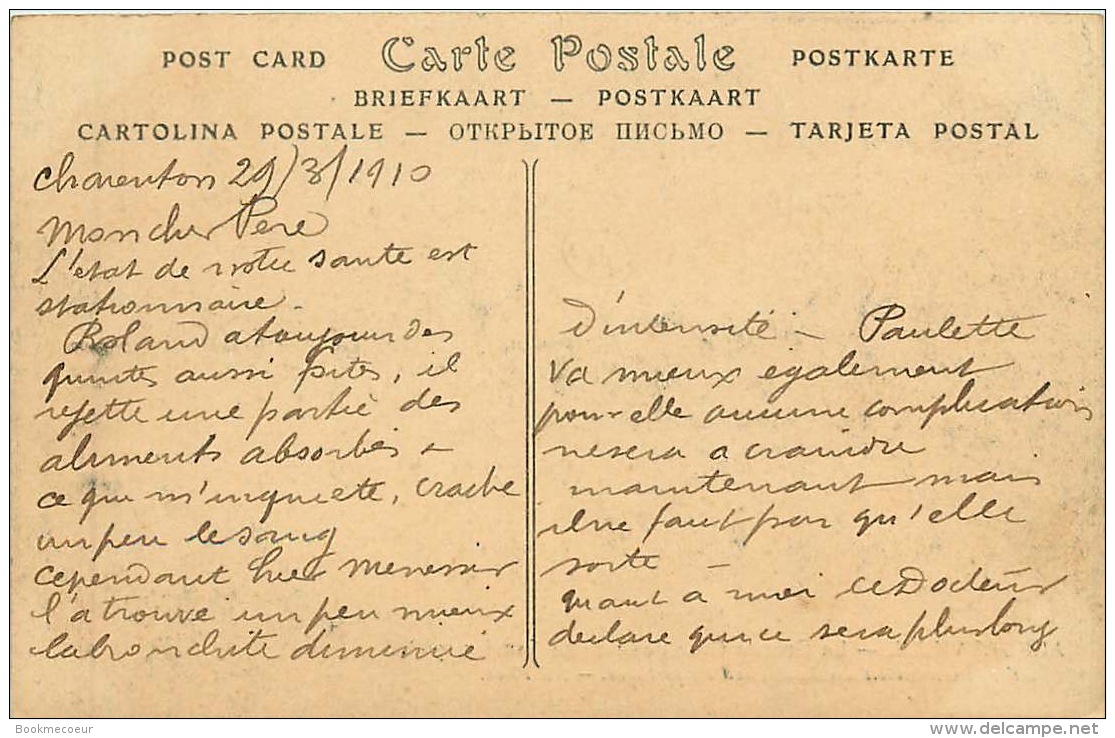 POST CARD Carte Postale POSTKARTE
BRIEFKAART — POSTKAART
CARTOLINA POSTALE — ОТКРЫТОЕ ПИСЬМО — TARJETA POSTAL
Charenton 29/3/1910
Mon cher Pere
L'etat de notre sante est
stationnaire -
Roland a toujours des
quintes aussi fites, il
rejette une partie des
aliments absorbés -
ce qui m'inquiete, crache
un peu le sang
cependant hier
l'a trouvé un peu mieux
la bronchite diminue
d'intensité - Paulette
va mieux egalement
pour elle aucune complication
ne sera a craindre
maintenant mais
il ne faut pas qu'elle
sorte -
quant à moi le Docteur
declare que ce sera plus long
Bookmecoeur
delcampe.net